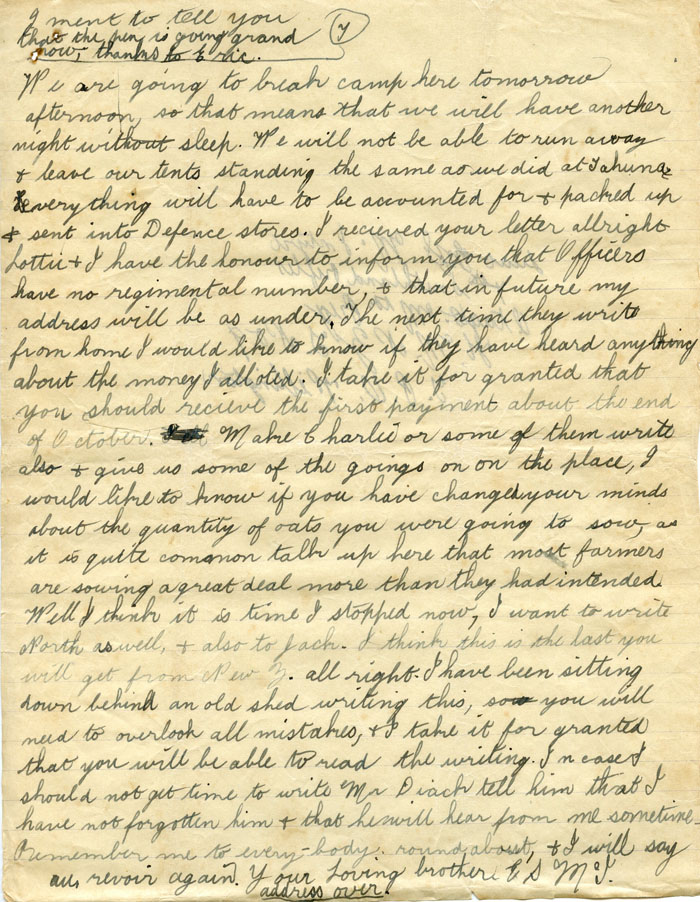 I ment to tell you
that the pen is going grand
now, thanks to Eric.
7
We are going to break camp here tomorrow
afternoon, so that means that we will have another
night without sleep. We will not be able to run away
& leave our tents standing the same as we did at Tahuna-
everything will have to be accounted for & packed up
& sent into Defence stores. I recieved your letter allright
Lottie & I have the honour to inform you that Officers
have no regimental number, & that in future my
address will be as under. The next time they write
from home I would like to know if they have heard anything
about the money I alloted. I take it for granted that
you should recieve the first payment about the end
of October. Make Charlie or some of them write
also & give us some of the goings on on the place, I
would like to know if you have changed your minds
about the quantity of oats you were going to sow, as
it is quite common talk up here that most farmers
are sowing a great deal more than they had intended.
Well I think it is time I stopped now, I want to write
North as well, & also to Jack. I think this is the last you
will get from New Z. all right. I have been sitting
down behind an old shed writing this, so you will
need to overlook all mistakes, & I take it for granted
that you will be able to read the writing. In case I
should not get time to write Mr Diack tell him that I
have not forgotten him & that he will hear from me sometime.
Remember me to every-body round about, & I will say
au, revoir again. Your Loving brother E S McI.
address over.